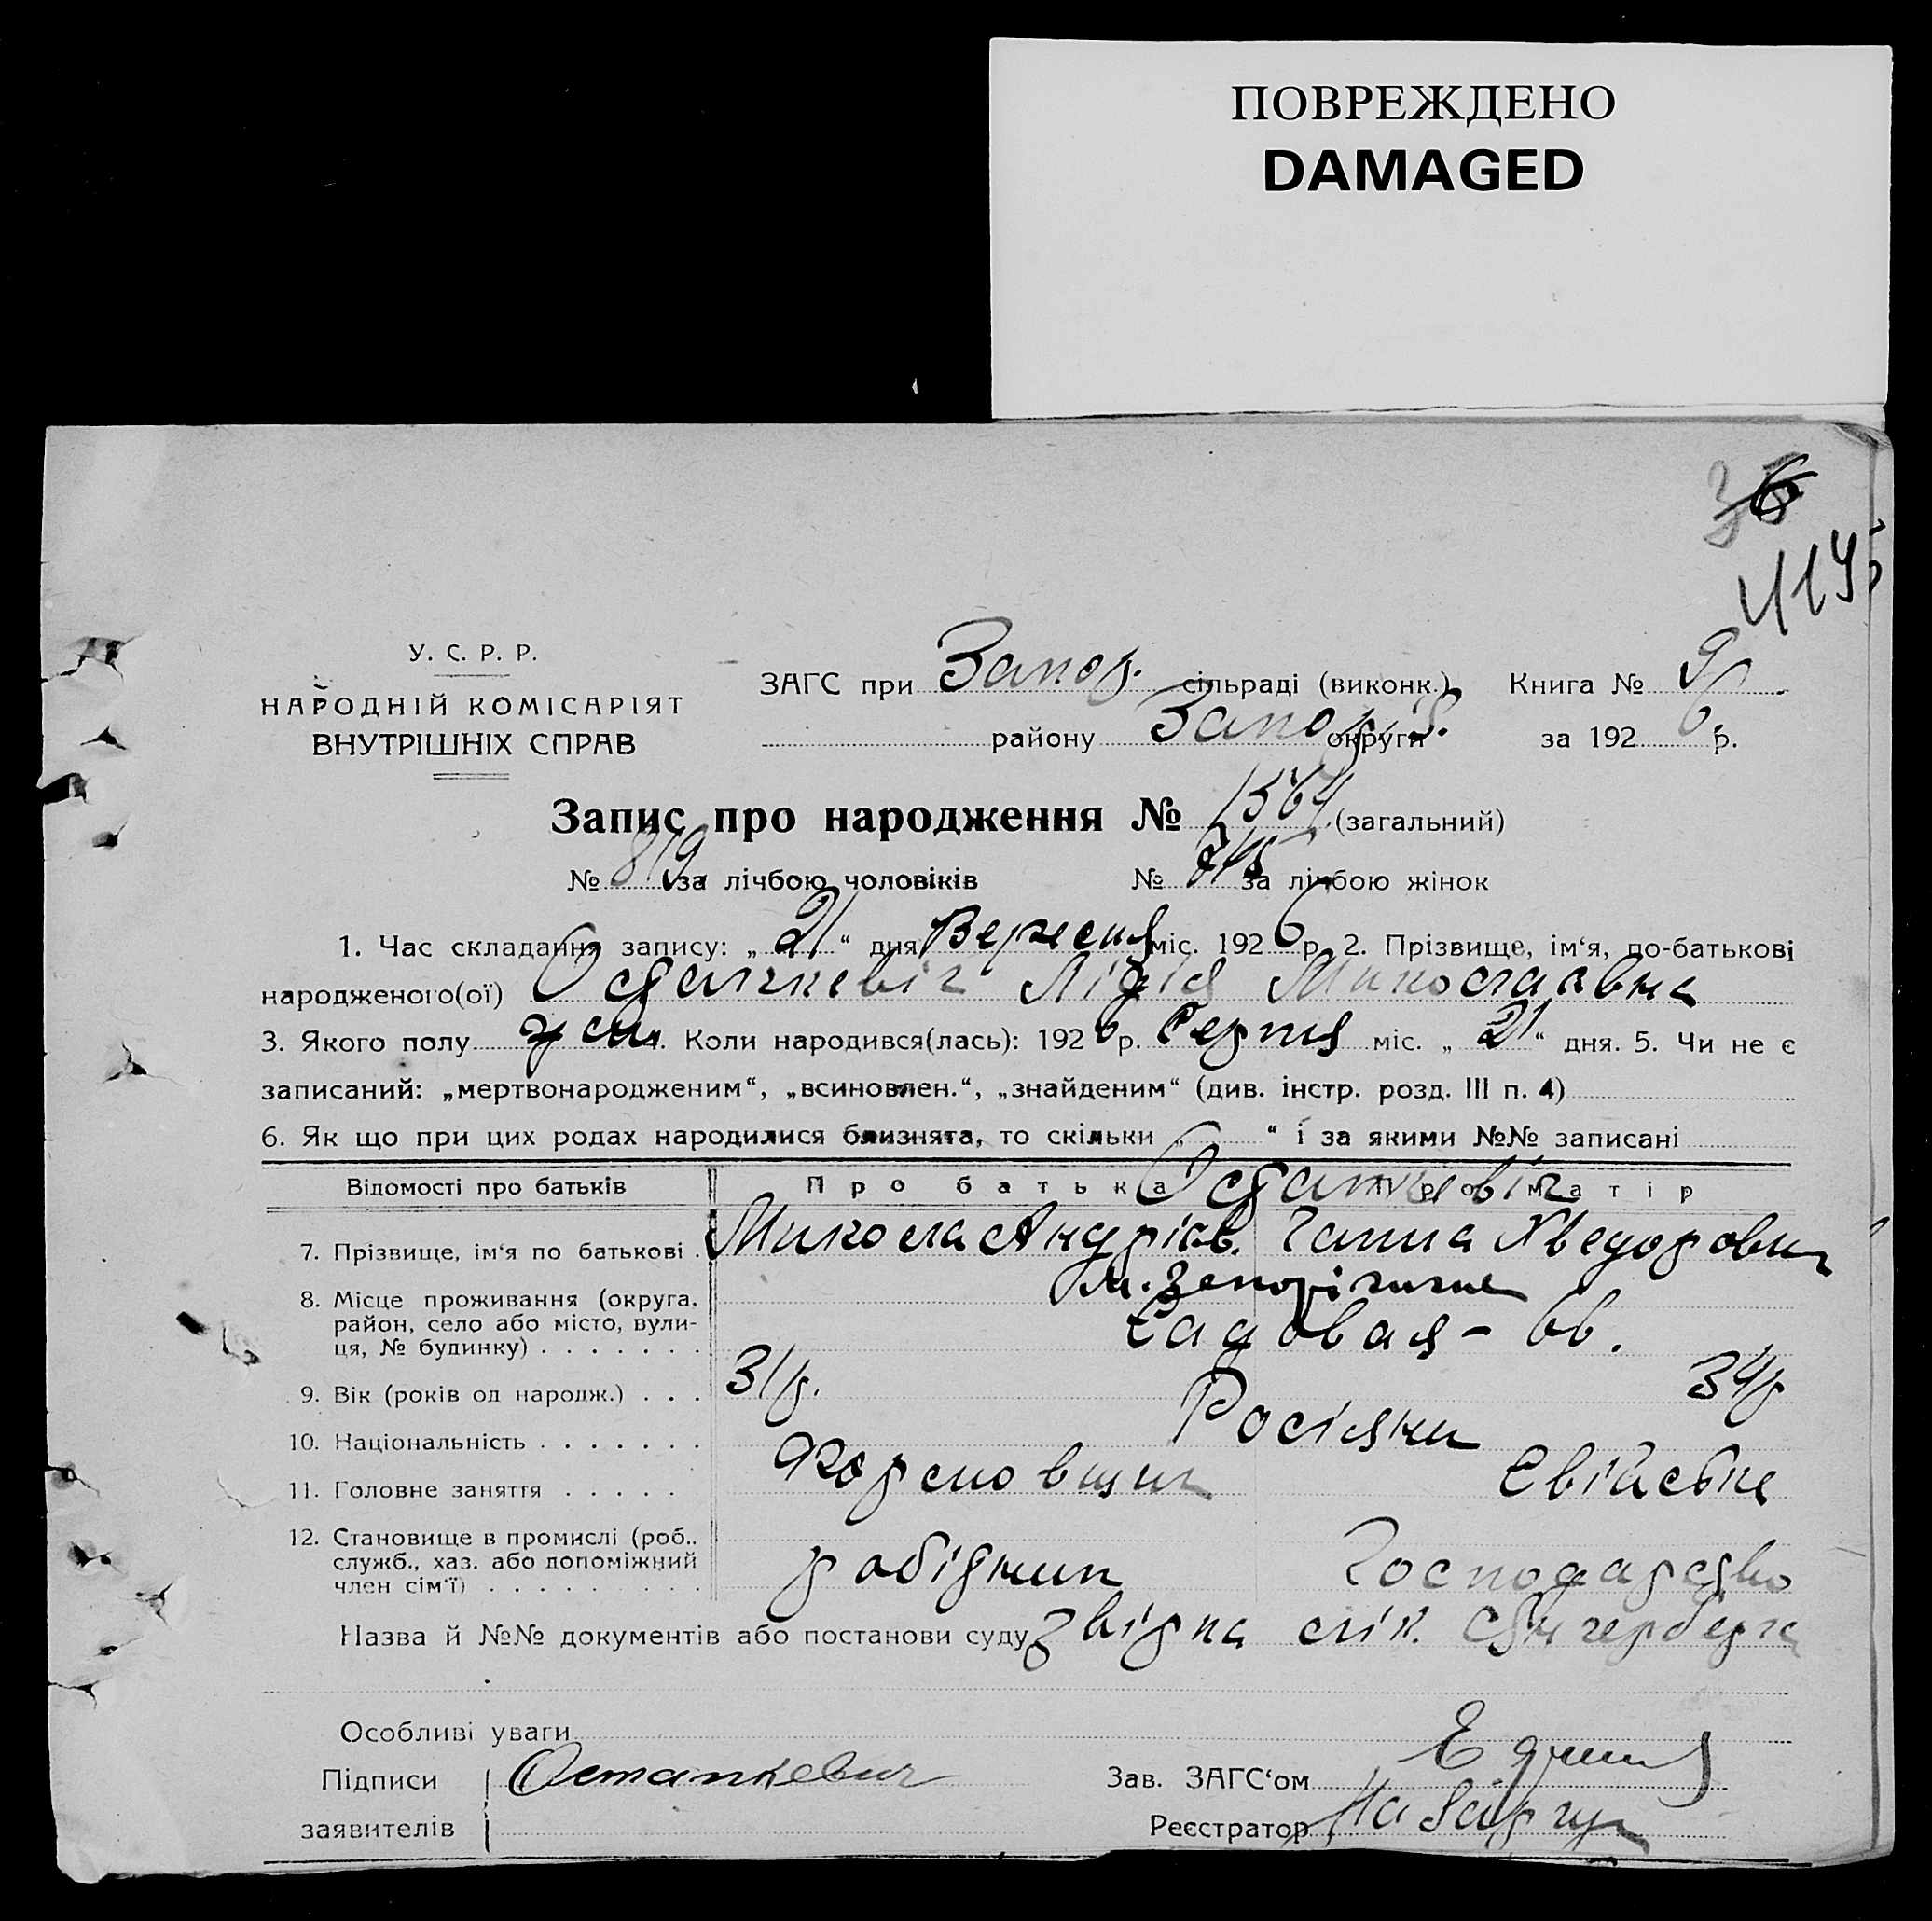 ПОВРЕЖДЕНО
DAMAGED
36
У. С. Р. Р.
НАРОДНІЙ КОМІСАРІЯТ
ВНУТРІШНІХ СПРАВ
ЗАГС при Запор. сільраді (виконк.) Книга № 9
району Запор. округи за 1926 р.
Запис про народження № 1564 (загальний)
№ 819 за лічбою чоловіків № 745 за лічбою жінок
1. Час складання запису: „21“ дня Вересня міс. 1926 р. 2. Прізвище, ім‘я, по-батькові
народженого(ої) Остапкевіч Лідія Миколаавна
3. Якого полу жін. 4. Коли народився(лась): 1926 р. Серпня міс. „21“ дня. 5. Чи не є
записаний: „мертвонародженим“, „всиновлен.“, „знайденим“ (див. інстр. розд. III п. 4)
6. Як що при цих родах народилися близнята, то скільки „ “ і за якими №№ записані
Відомості про батьків Про батька Про матір
Остапкевіч
7. Прізвище, ім‘я по батькові . Микола Андріїв. Ганна Хведоровн
8. Місце проживання (округа, район, село або місто, вулиця, № будинку) . . . . . . . м. Запоріжжє
Садовая - 66.
9. Вік (років од народж.) . . . 31 р. 34 р
10. Національність . . . . . . . Росіяни
11. Головне заняття . . . . . Свійське
12. Становище в промислі (роб., служб., хаз. або допоміжний член сім‘ї) . . . . . . . . . робітник Господарство
Назва й №№ документів або постанови суду Звірка лік.
Особливі уваги
Підписи Остапкевич Зав. ЗАГС‘ом
заявителів Реєстратор